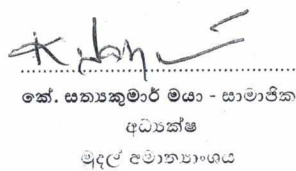 කේ. සත්‍යකුමාර් මයා - සාමාජික
අධ්‍යක්ෂ
මුදල් අමාත්‍යාංශය